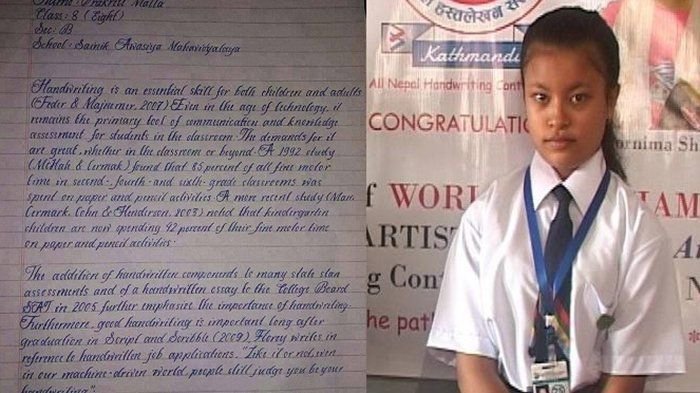 Prakriti Malla
Class: 8 (Eight)
Sec: B
School: Sainik Awasiya Mahavidyalaya
Handwriting is an essential skill for both children and adults
(Feder & Majnemer, 2007) Even in the age of technology, it
remains the primary tool of communication and knowledge
assessment for students in the classroom. The demands for it
are great, whether in the classroom or beyond. A 1992 study
(McHale & Cermak) found that 85 percent of all fine motor
time in second, fourth and sixth grade classrooms was
spent on paper and pencil activities. A more recent study (Marr,
Cermark, Cohn & Henderson, 2003) noted that kindergarten
children are now spending 42 percent of their fine motor time
on paper and pencil activities.
The addition of handwritten components to many state stan
assessments and of a handwritten essay to the College Board
SAT in 2005 further emphasize the importance of handwriting.
Furthermore, good handwriting is important long after
graduation in Script and Scribble (2009), Florey writes in
reference to handwritten job applications. "Like it or not, even
in our machine-driven world, people still judge you by your
handwriting".
हस्तलेखन
Kathmandu
All Nepal Handwriting Cont
CONGRATULA
ornima Sh
of WOR
IAM
ARTIS
ng Con
he pat